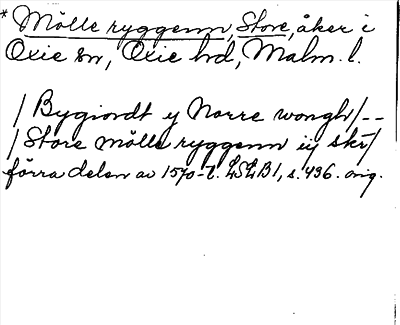 * Mölle ryggenn, Store, åker i
Oxie sn, Oxie hd, Malm. l.
/ Bygiordt y Norre wongh / --
/ Store mölle ryggenn iij skr /
förra delen av 1570-t. LSLB1, s. 436. orig.